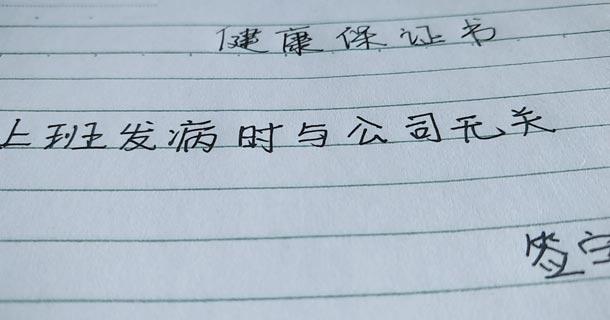 健康保证书
上班发病时与公司无关
签字